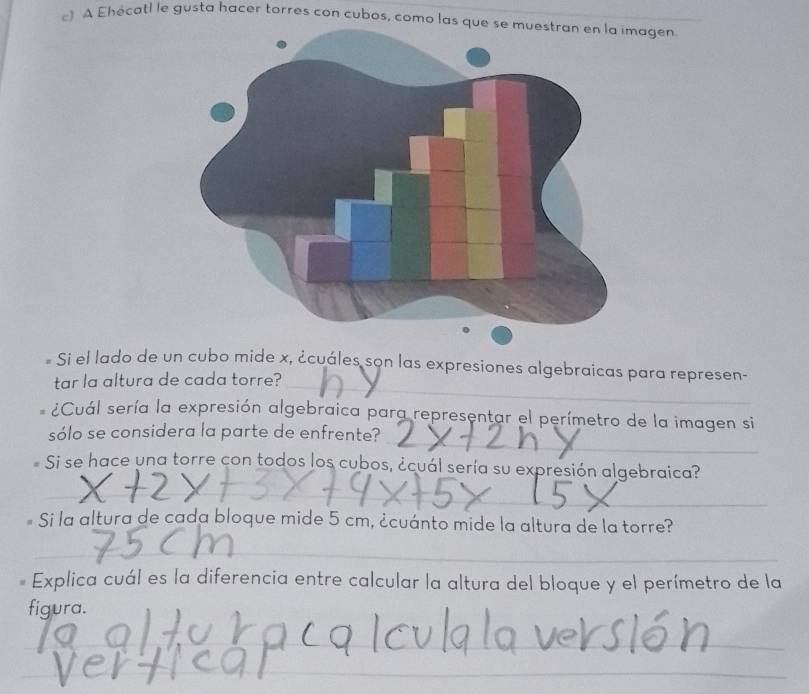 c) A Ehécatl le gusta hacer torres con cubos, como las que se muestran en la imagen.
Si el lado de un cubo mide x, ¿cuáles son las expresiones algebraicas para represen-
tar la altura de cada torre? h y
¿Cuál sería la expresión algebraica para representar el perímetro de la imagen si
sólo se considera la parte de enfrente? 2x+2hy
Si se hace una torre con todos los cubos, ¿cuál sería su expresión algebraica?
x+2x+3x+4x+5x 15x
Si la altura de cada bloque mide 5 cm, ¿cuánto mide la altura de la torre?
75cm
Explica cuál es la diferencia entre calcular la altura del bloque y el perímetro de la
figura.
la altura calcula la versión
vertical